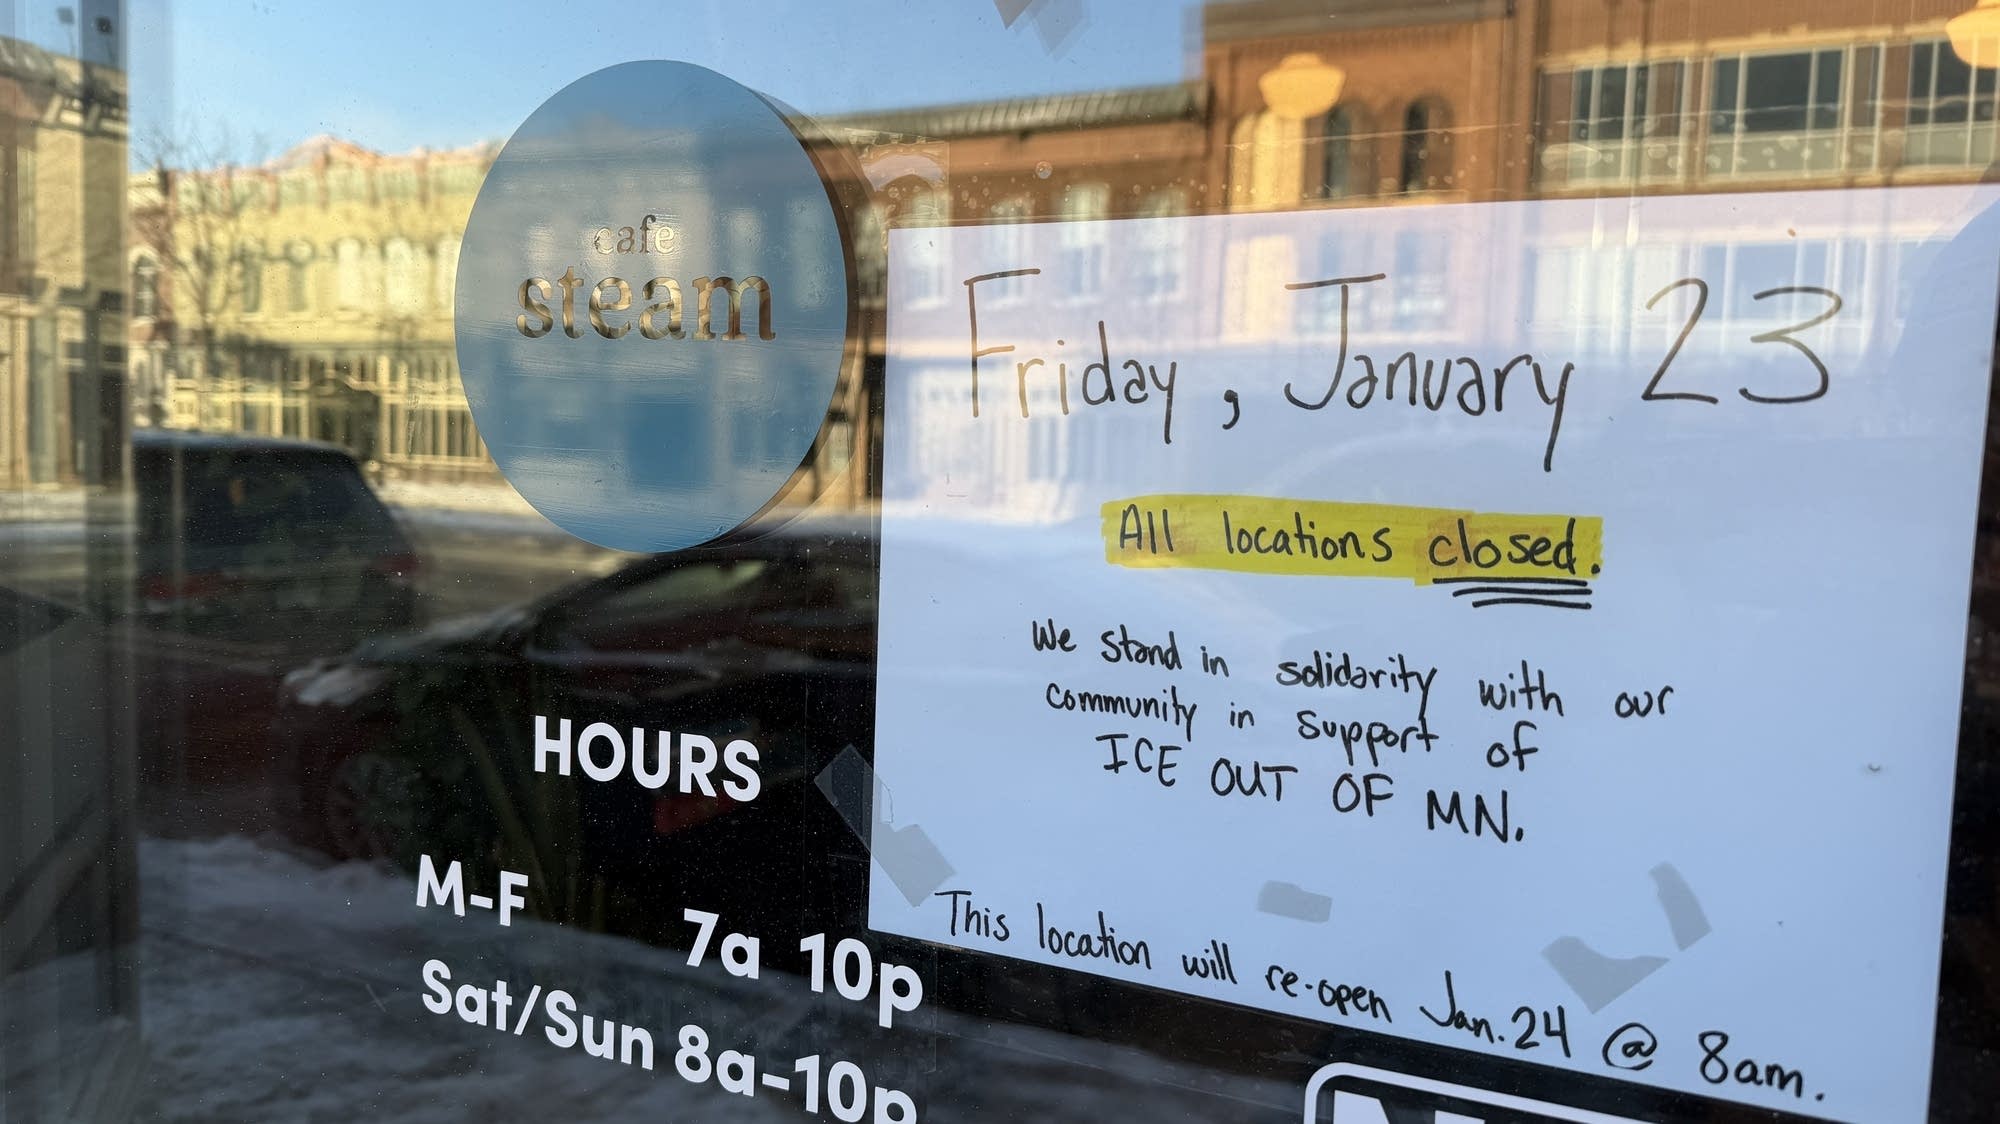 cafe
steam
HOURS
M-F 7a 10p
Sat/Sun 8a-10p
Friday, January 23
All locations closed.
We stand in solidarity with our
community in support of
ICE OUT OF MN.
This location will re-open Jan. 24 @ 8am.